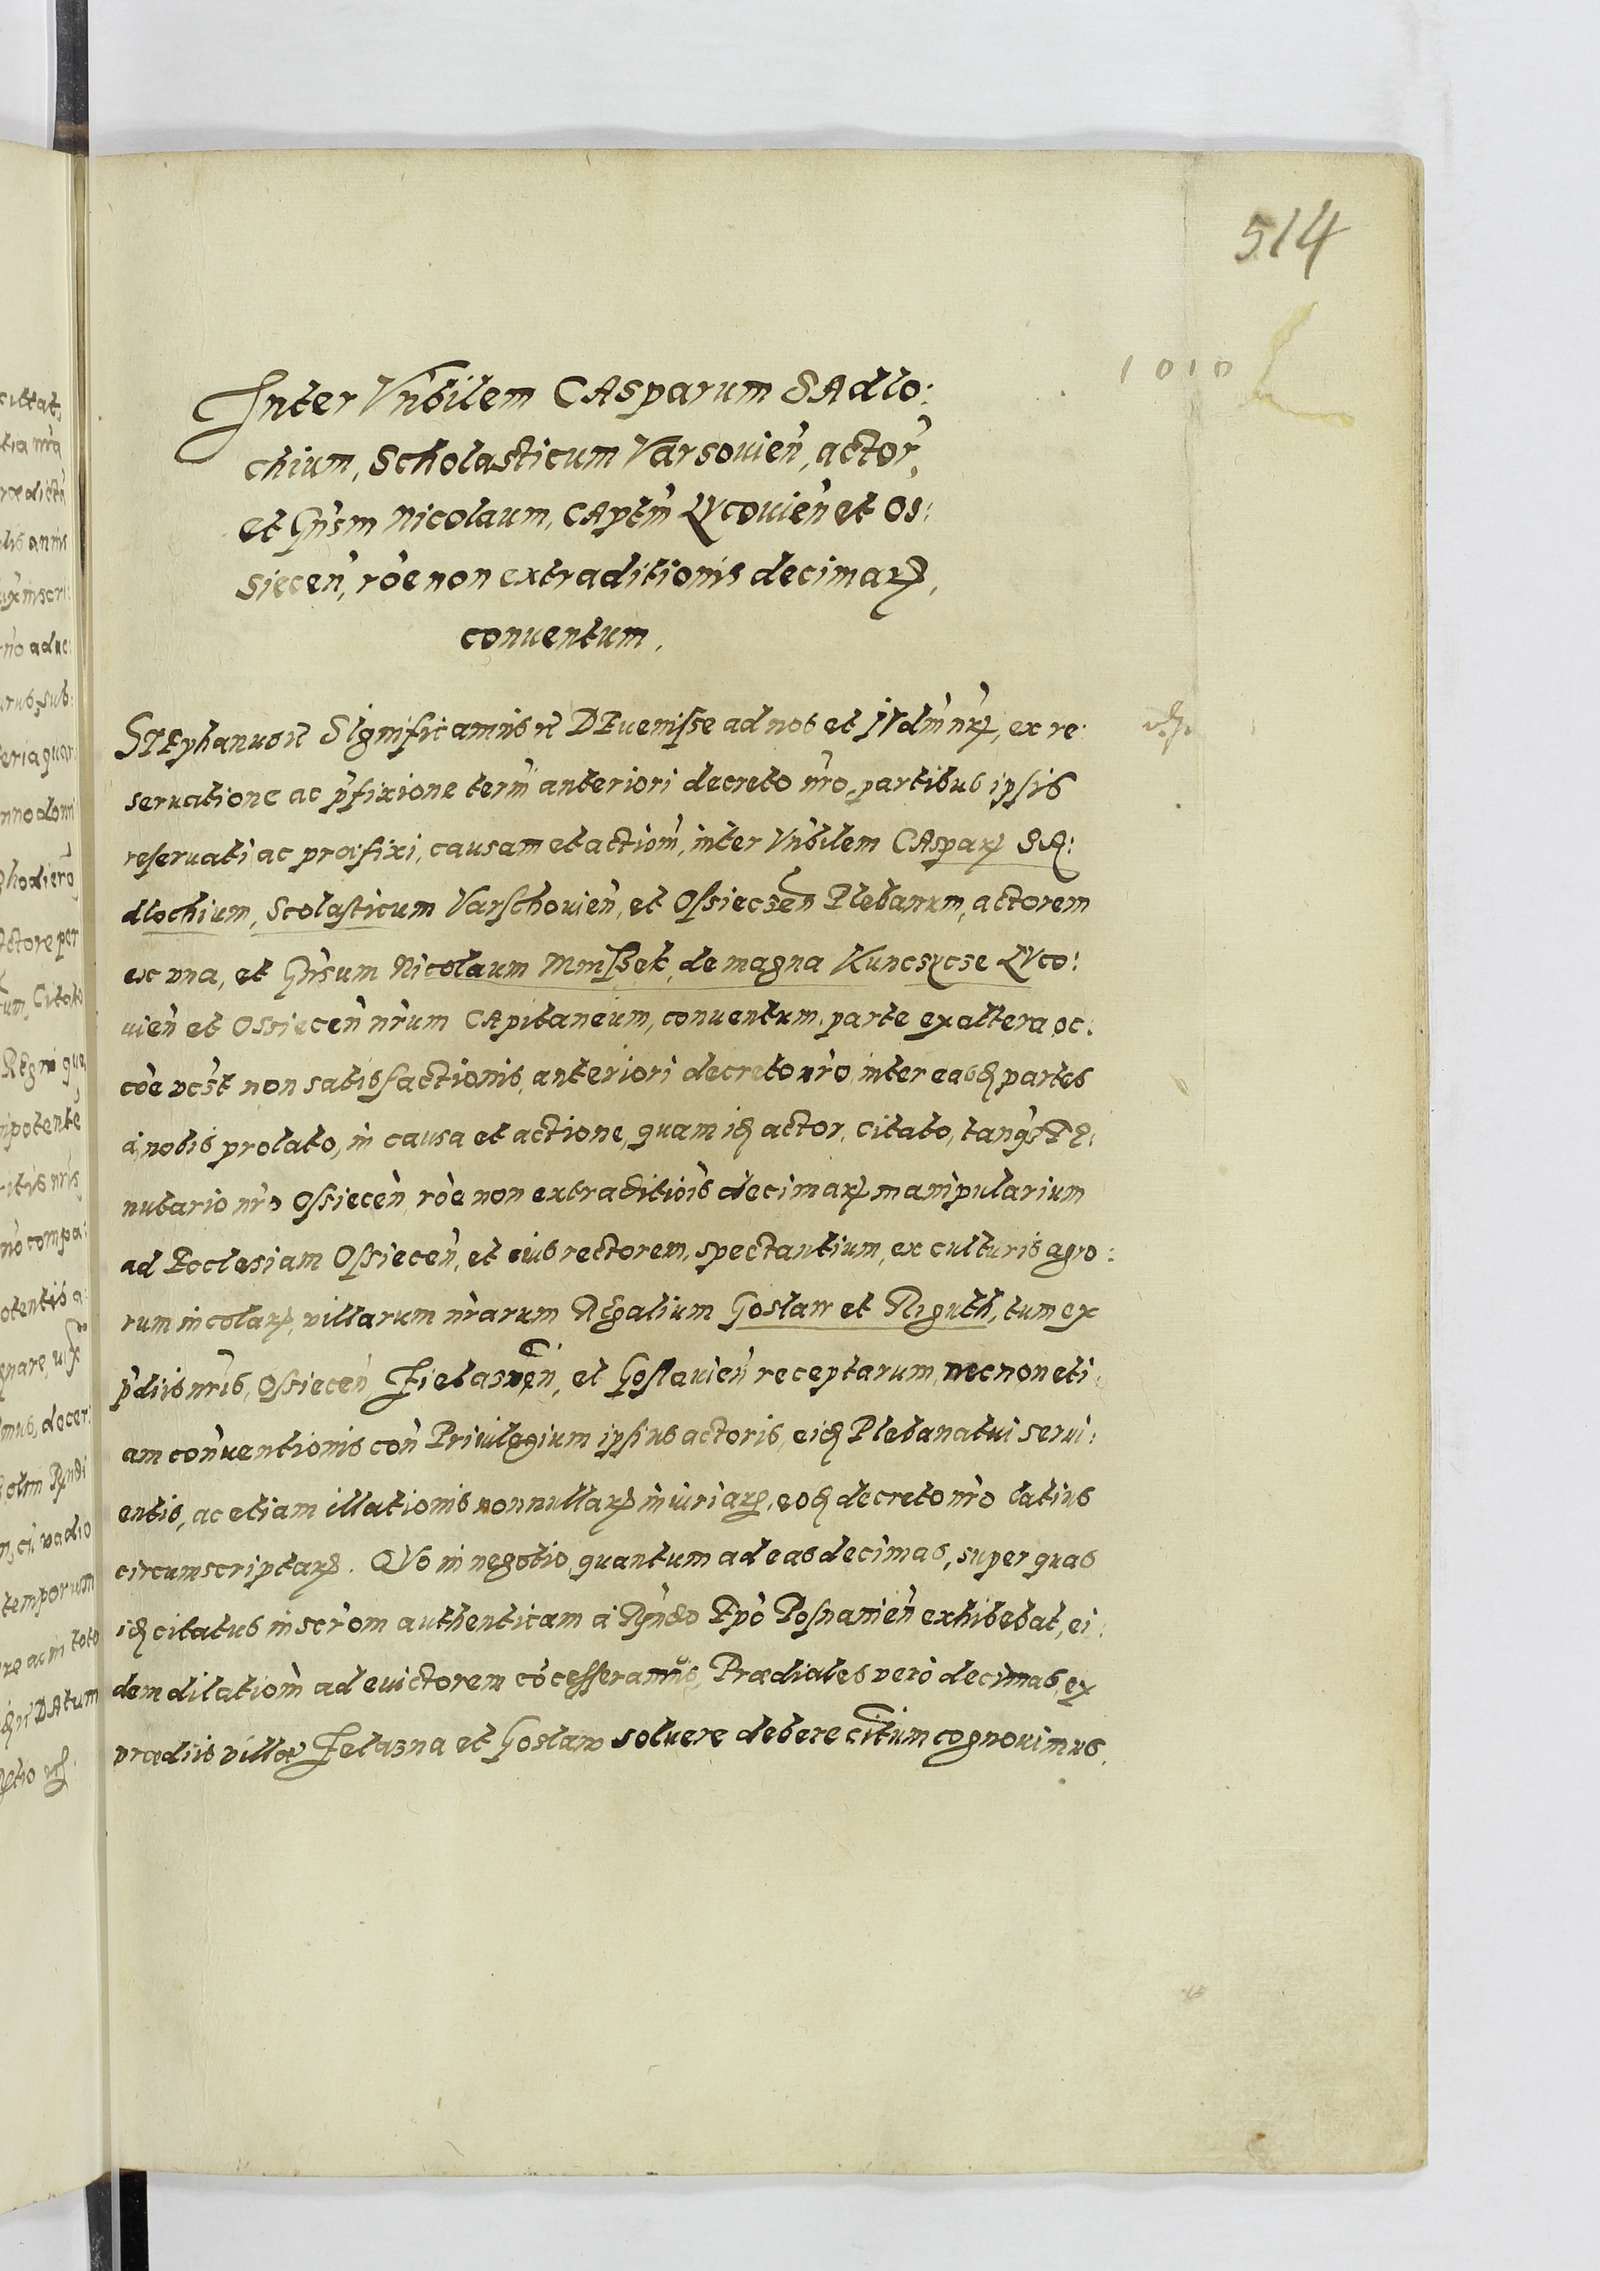 514
1010
Inter Vn̄bilem CAsparum SAdlo:
chium, Scholasticum Varsouien̄, actor̄,
et Gn̄sm Nicolaum, CAptm̄ LYcouien̄ et Os:
siecen̄, rōe non extraditionis decimaꝝ,
conuentum.
STEphanus ꝛc SIgnificamus ꝛc DEuenisse ad nos et IVdm̄ nr̄ꝝ, ex re:
seruatione ac p̄fixione term̄ anteriori decreto nr̄o, partibus ipsis
reseruati ac præfixi, causam et actiom̄, inter Vn̄bilem CAspaꝝ SA:
dlochium, Scolasticum Varschouien̄, et Ossieczen̄ Plebanum, actorem
ex vna, et Gn̄sum Nicolaum Mniszek, de magna Kunczycze LYco:
uien̄ et Ossiecen̄ nr̄um CApitaneum, conuentum, parte ex altera, oc:
cōe vcst non satisfactionis, anteriori decreto nr̄o, inter easdꝫ partes
a, nobis prolato, in causa et actione, quam idꝫ actor, citato, tanq̄s TE:
nutario nr̄o Ossiecen̄ rōe non extraditiōis decimaꝝ manipularium
ad Ecclesiam Ossiecen̄, et eius rectorem, spectantium, ex culturis agro:
rum incolaꝝ, villarum nr̄arum REgalium Goslaw et Riguth, tum ex
p̄diis nr̄is, Ossiecen̄ Zielasnen̄, et Goslauien̄ receptarum, necnon eti:
am conuentionis con̄ Priuilegium ipsius actoris, eidꝫ Plebanatui serui:
entis, ac etiam illationis nonnullaꝝ iniuriaꝝ, eodꝫ decreto nr̄o latius
circumscriptaꝝ. QVo in negotio, quantum ad eas decimas, super quas
idꝫ citatus inscr̄om authenticam a Rn̄do Epō Posnanien̄ exhibebat, ei:
dem dilatiom̄ ad euictorem cōcesseramus, Prædiales vero decimas, ex
prædiis villæ Zelazna et Goslaw soluere debere citūm cognouimus.